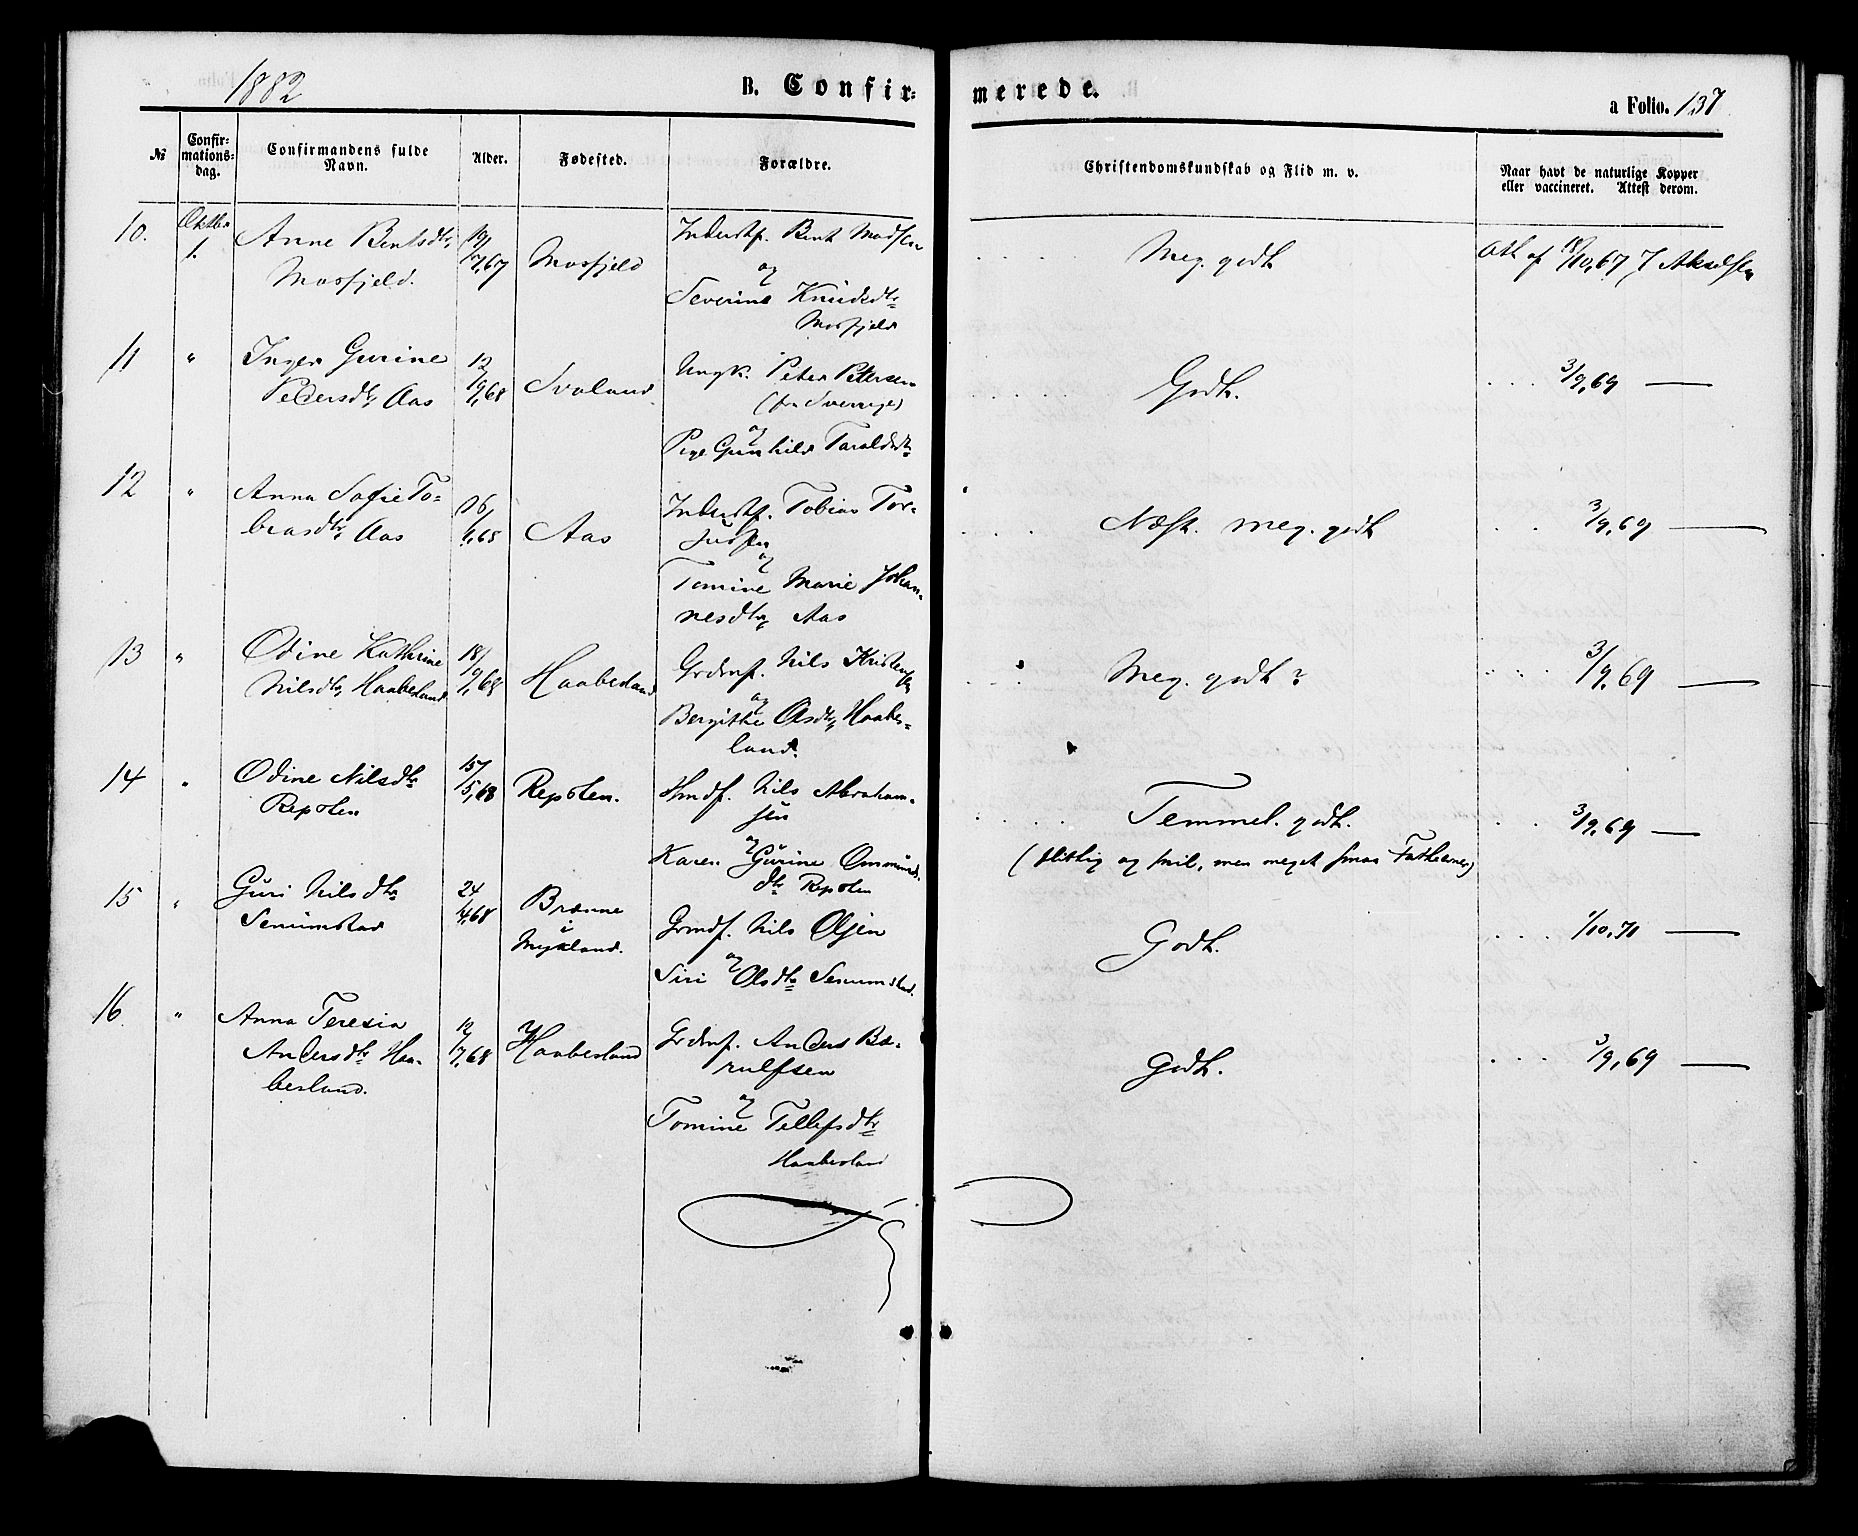 1882
B. Confir-
merede.
a Folio. 137
№
Confir-
mations-
dag.
Confirmandens fulde
Navn.
Alder.
Fødested.
Forældre.
Christendomskundskab og Flid m. v.
Naar havt de naturlige Kopper
eller vaccineret. Attest derom.
10.
Oktbr
1.
Anne Bentsdtr
Mosfjeld.
19/
7,67
Mosfjeld
Inderstf. Bent Madsen
og
Severine Knudsdtr
Mosfjeld
Meg. godt
Att af 18/10,67 J Akselsen
11
"
Inger Gurine
Pedersdtr Aas
12
/9,68
Svaland
Ungk. Peter Petersen
(fra Sverrige)
og
Pige Gunhild Taraldsdtr
Godt.
3/9,69
12
"
Anna Sofie To-
biasdtr Aas
Aas
Inderstf. Tobias Tor-
jussen
og
Tomine Marie Johan-
nesdtr Aas
Næst. meg. godt
3/9,69
13
"
Odine Kathrine
Nilsdtr Haabesland
18/
Haabesland
Grdmf. Nils Kristensen
og
Bergithe Osdtr Haabes-
land.
Meg. godt?
3/9,69
14
"
Odine Nilsdtr
Repsten
15/
/5,68
Repsten.
Hmdf. Nils Abraham-
sen
og
Karen Gurine Ommunds-
dtr Repsten
Temmel. godt.
(flittig og snil, men meget smaa Fatteevner)
3/9,69
15
"
Guri Nilsdtr
Senumstad
24
/4,68
Brænne
i
Mykland.
Grmdf. Nils Olsen
og
Siri Olsdtr Senumstad.
Godt.
1/10,71
16
"
Anna Teresia
Andersdtr Haa-
besland.
12
/7,68
Haabesland
Grdmf. Anders Bæ-
rulfsen
og
Tomine Tellefsdtr
Haabesland
Godt.
3/9,69